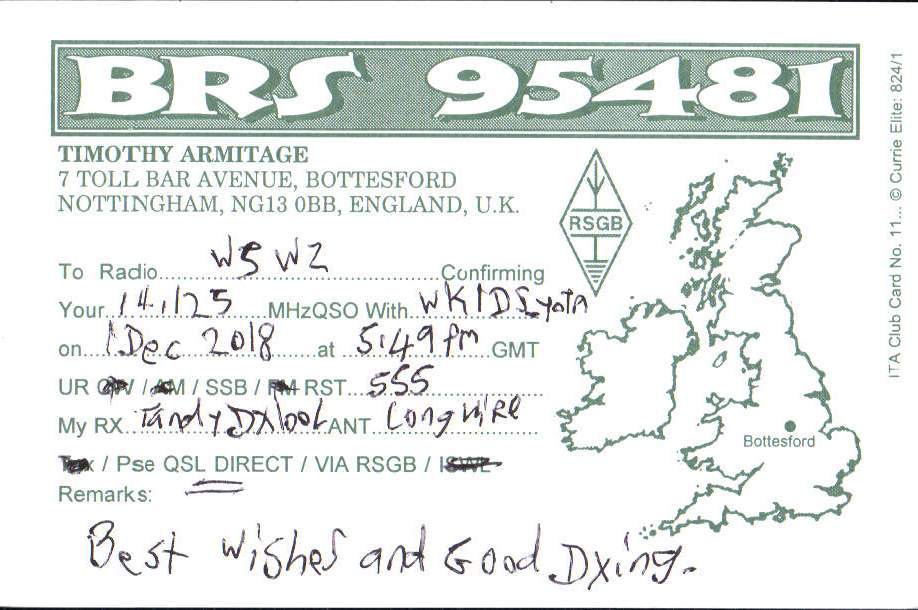 BRS 95481
TIMOTHY ARMITAGE
7 TOLL BAR AVENUE, BOTTESFORD
NOTTINGHAM, NG13 0BB, ENGLAND, U.K.
RSGB
To Radio W5WZ Confirming
Your 14.125 MHz QSO With WK1DSyota
on 1 Dec 2018 at 5:49 pm GMT
UR / SSB / RST 555
My RX Tandy DX100L ANT Longwire
/ Pse QSL DIRECT / VIA RSGB /
Remarks:
Best Wishes and Good Dxing.
Bottesford
ITA Club Card No. 11... © Currie Elite: 824/1